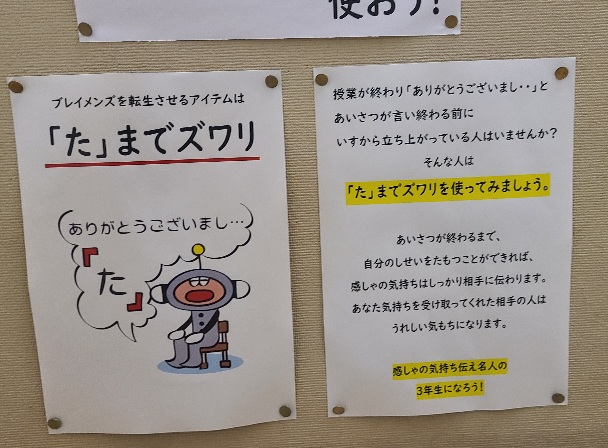 使おう!
ブレイメンズを転生させるアイテムは
「た」までズワリ
ありがとうございまし…
『た』
授業が終わり「ありがとうございまし・・」と
あいさつが言い終わる前に
いすから立ち上がっている人はいませんか?
そんな人は
「た」までズワリを使ってみましょう。
あいさつが終わるまで、
自分のしせいをたもつことができれば、
感しゃの気持ちはしっかり相手に伝わります。
あなた気持ちを受け取ってくれた相手の人は
うれしい気もちになります。
感しゃの気持ち伝え名人の
3年生になろう!